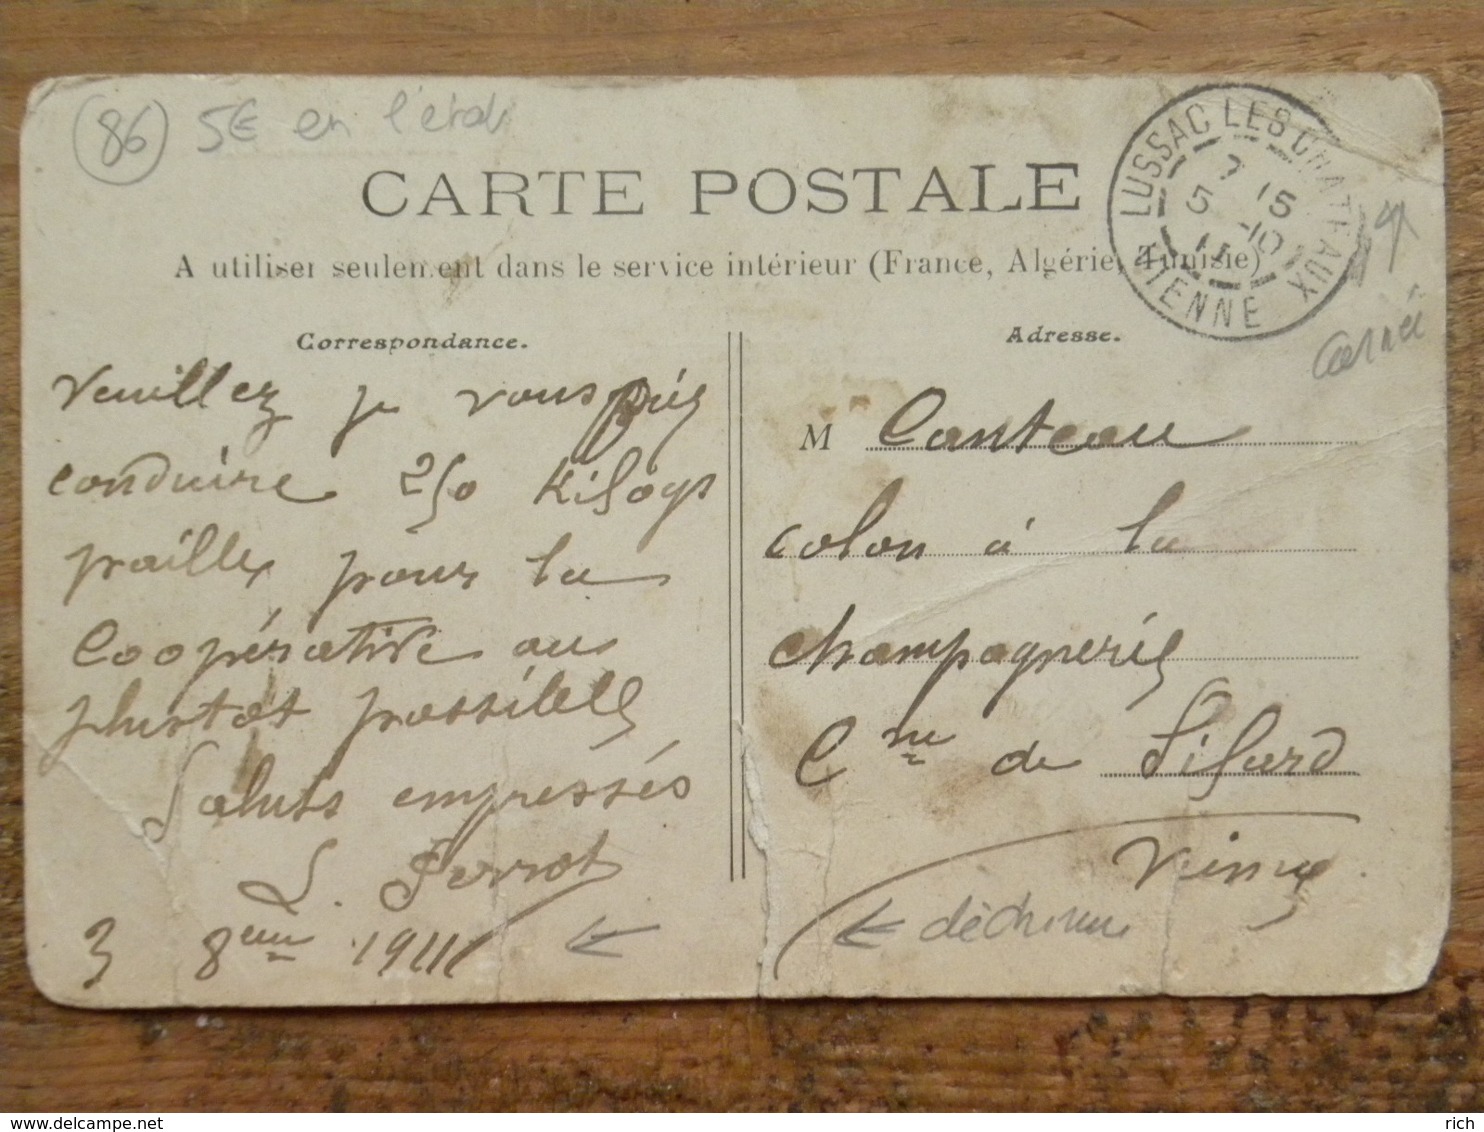 86 5€ en l'état
CARTE POSTALE
A utiliser seulement dans le service intérieur (France, Algérie, Tunisie)
LUSSAC LES CHATEAUX
7 15
5 10
VIENNE
corné
Correspondance.
Veuillez je vous prie
conduire 250 Kilogs
paille pour la
Coopérative au
plustot possible
Saluts empressés
L. Perrot
3 8bre 1911
Adresse.
M Canteau
colon à la
champagnerie
Cne de Sifard
Vienne
déchirure
delcampe.net
rich